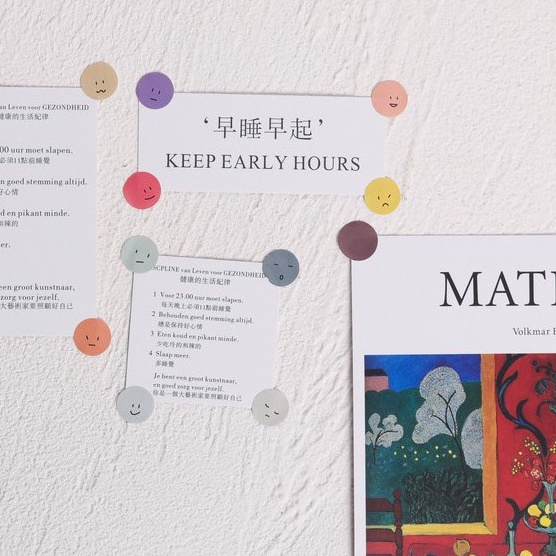 van Leven voor GEZONDHEID
健康的生活紀律
00 uur moet slapen.
必須11點前睡覺
en goed stemming altijd.
好心情
d en pikant minde.
和辣的
er.
een groot kunstnaar,
zorg voor jezelf.
大藝術家要照顧好自己
‘早睡早起’
KEEP EARLY HOURS
SCPLINE van Leven voor GEZONDHEID
健康的生活紀律
1 Voor 23.00 uur moet slapen.
每天晚上必須11點前睡覺
2 Behouden goed stemming altijd.
總是保持好心情
3 Eten koud en pikant minde.
少吃冷的和辣的
4 Slaap meer.
多睡覺
Je bent een groot kunstnaar,
en goed zorg voor jezelf.
你是一個大藝術家要照顧好自己
MATI
Volkmar E